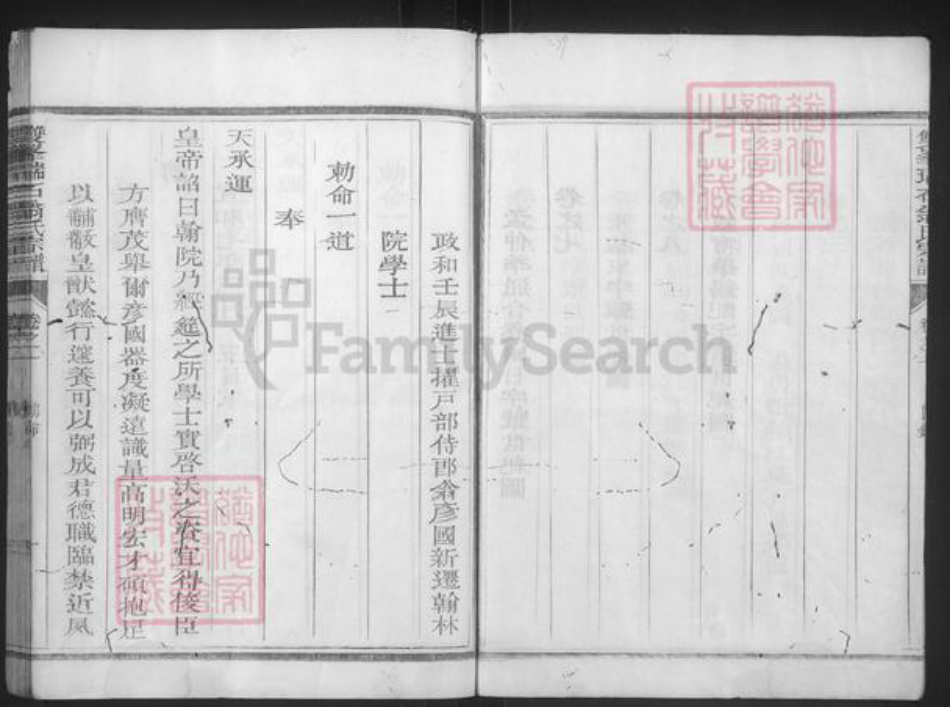 政和壬辰進士擢戶部侍郎翁彥國新遷翰林
院學士
勅命一道
奉
天承運
皇帝詔曰翰院乃經筵之所學士實啓沃之宜得俊臣
方膺茂舉爾彥國器度凝遠識量高明宏才碩抱足
以黼黻皇猷懿行邃養可以弼成君德職臨禁近夙
卷之一
FamilySearch